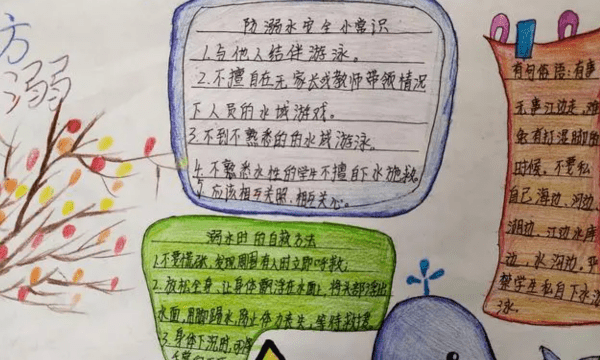 防
溺
防溺水安全小常识
1.与他人结伴游泳。
2.不擅自在无家长或教师带领情况
下人员的水域游戏。
3.不到不熟悉的的水域游泳。
4.不熟悉水性的学生不擅自下水施救。
5.应该相互关照、相互关心。
溺水时的自救方法
1.不要慌张,发现周围有人时立即呼救
2.放松全身,让身体飘浮在水面上,将头部浮出
水面,用脚踢水,防止体力丧失,等待救援
3.身体下沉时,
有句俗语:有事
无事江边走,难
免有打湿脚的
时候,不要私
自己海边、河边、
湖边、江边水库
边、水沟边、
禁学生私自下水游
泳。